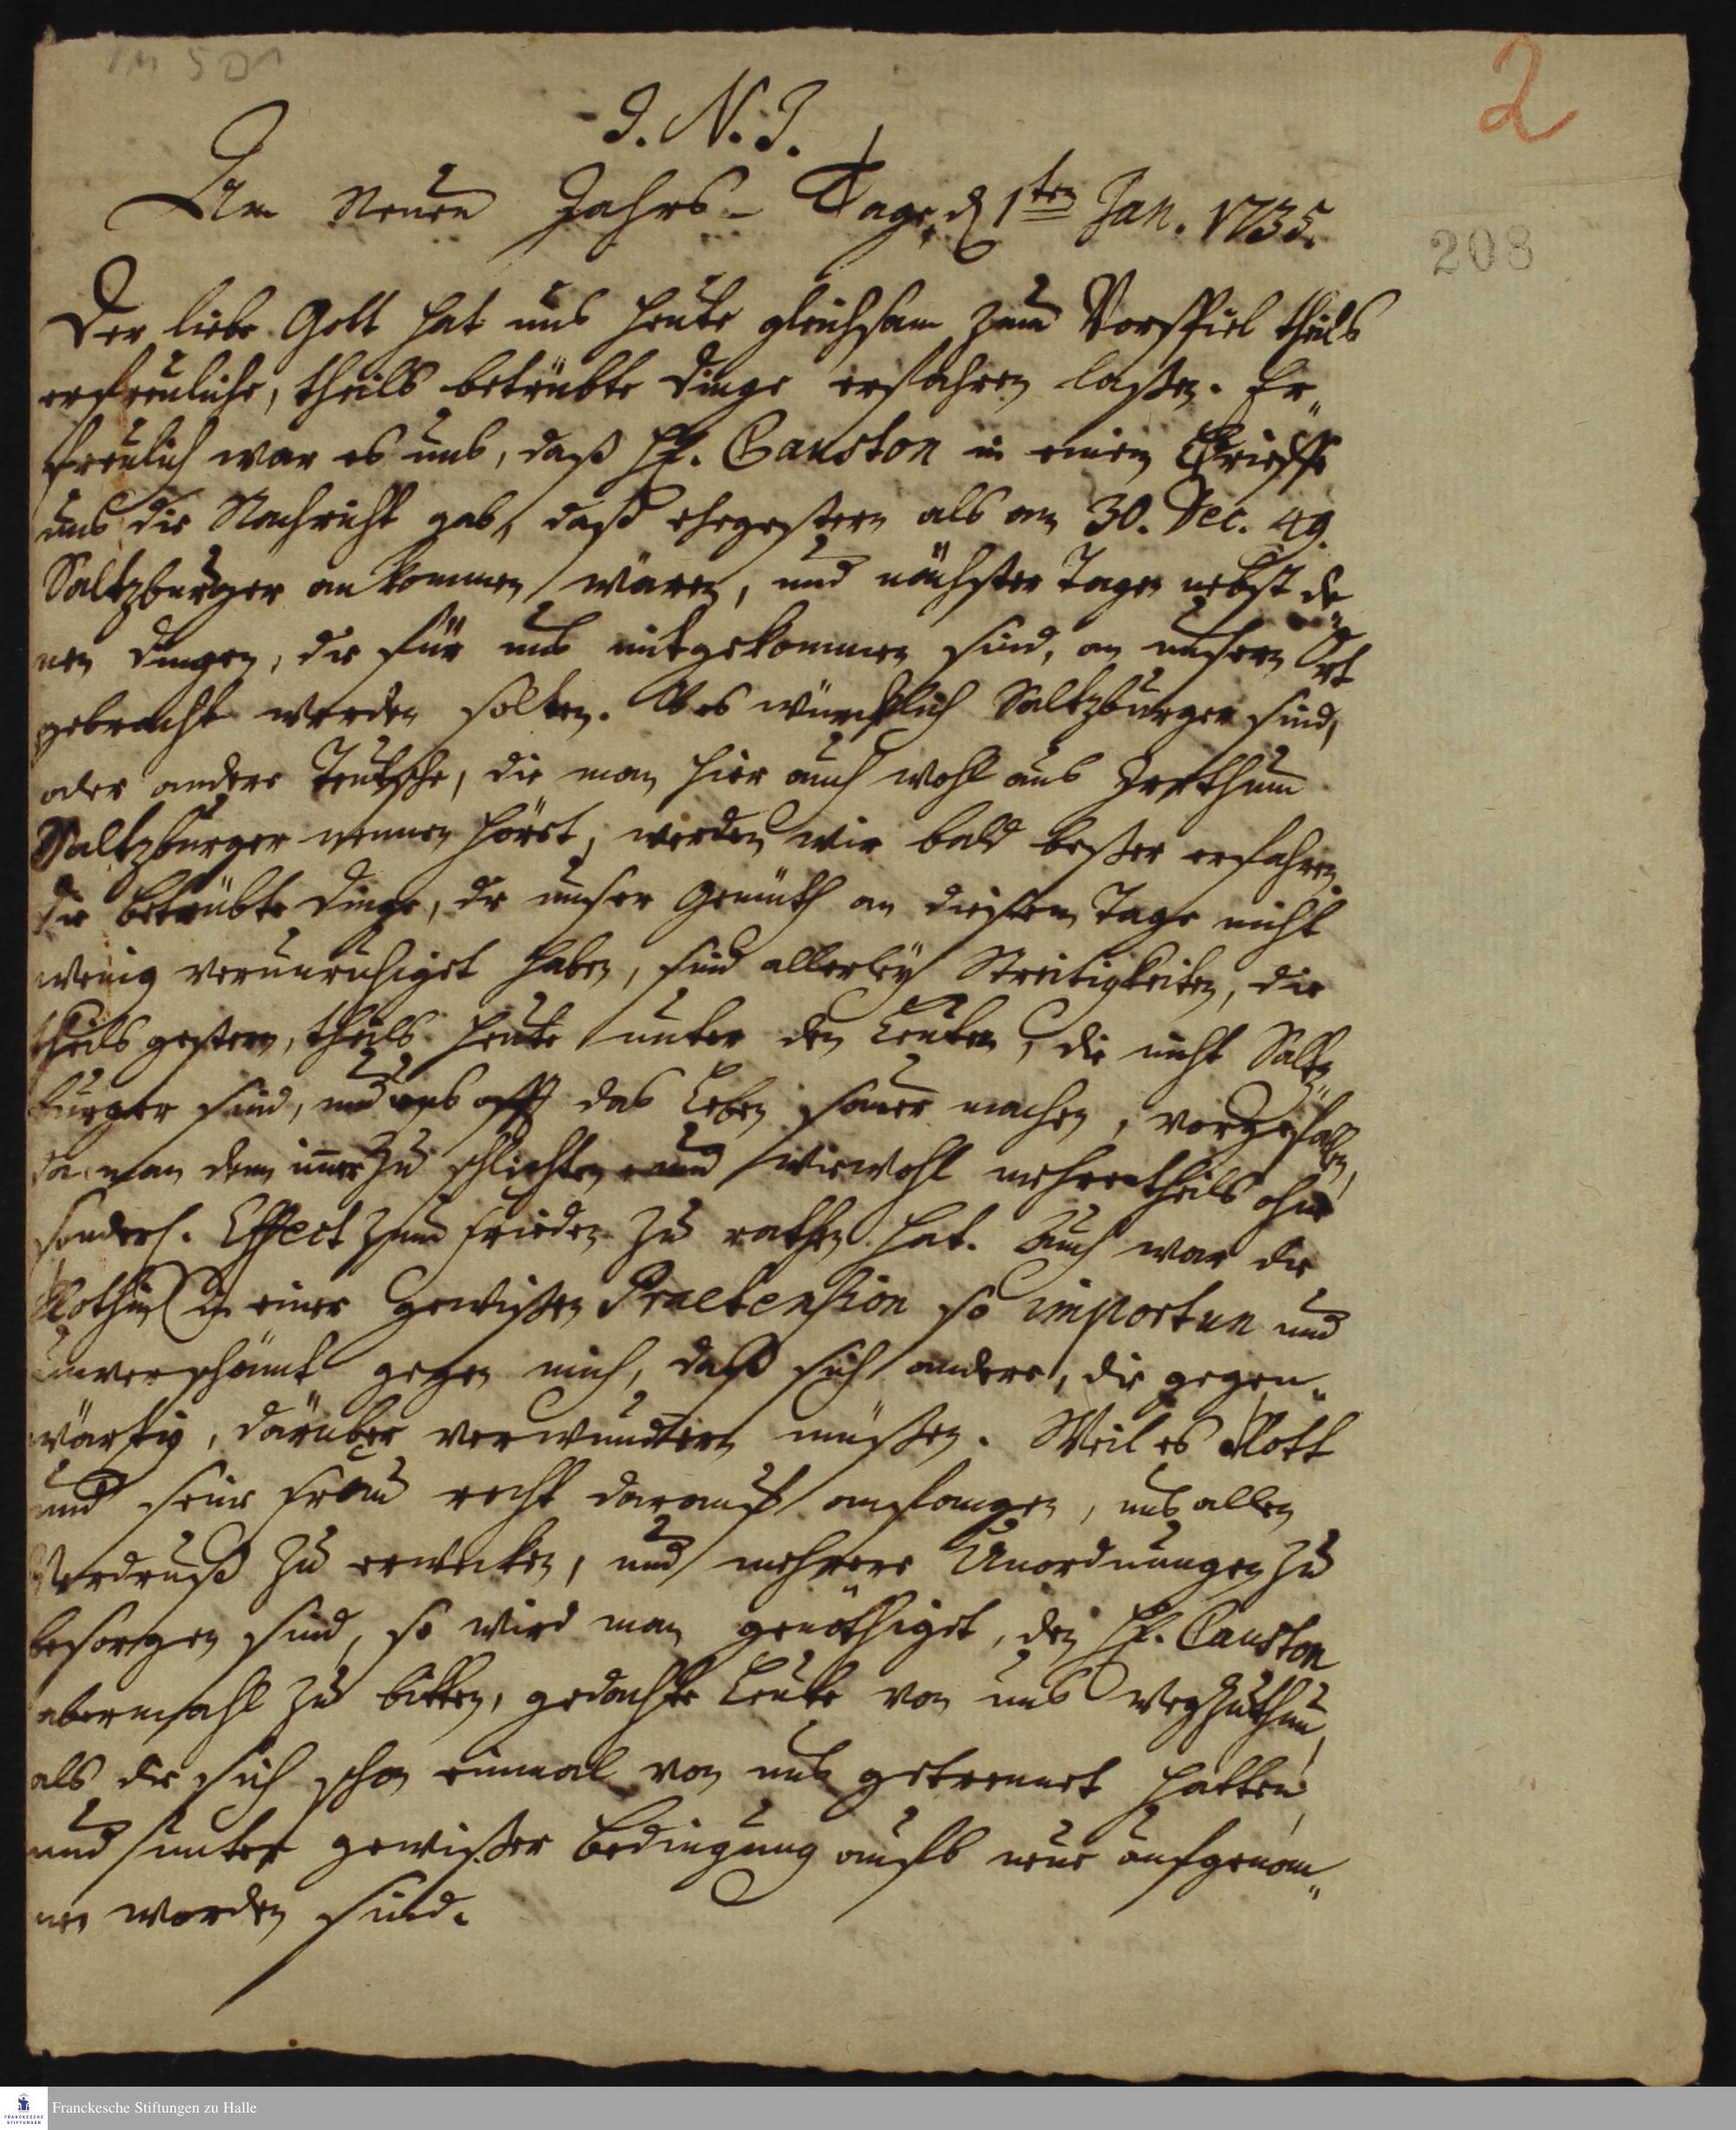 2
208
J. N. J.
Am Neuen Jahrs-Tage, d 1ten Jan. 1735.
Der liebe Gott hat uns heute gleichsam zum Vorspiel theils
erfreuliche, theils betrübte Dinge erfahren laßen. Er„
freulich war es uns, daß H. Causton in einem Brieffe
uns die Nachricht gab, daß ehegestern als am 30. Dec. 49.
Saltzburger ankommen wären, und nächster Tagen nebst de„
nen Dingen, die für uns mitgekommen sind, an unsern Ort
gebracht werden solten. Ob es würcklich Saltzburger sind,
oder andere Teutsche, die man hier auch wohl aus Irrthum
Saltzburger nennen hört, werden wir bald beßer erfahren.
Die betrübte Dinge, die unser Gemüth an diesem Tage nicht
wenig verunruhiget haben, sind allerley Streitigkeiten, die
theils gestern, theils heute unter den Leuten, die nicht Saltz„
burger sind, und uns offt das Leben sauer machen, vorgefallen,
da man denn immer zu schlichten und wiewohl mehrentheils ohne
sonderl. Effect zum Frieden zu rathen hat. Auch war die
Rothin in einer gewißen Praetension so importun und
unverschämt gegen mich, daß sich andere, die gegen„
wärtig, darüber verwundern müßen. Weil es Rott
und seine Frau recht darauf anfangen, uns allen
Verdruß zu erwecken, und mehrere Unordnungen zu
besorgen sind, so wird man genöthiget, den H. Causton
abermahl zu bitten, gedachte Leute von uns wegzuthun,
als die sich schon einmal von uns getrennet hatten,
und unter gewißer Bedingung aufs neue aufgenom„
men worden sind.
FRANCKESCHE
STIFTUNGEN
Franckesche Stiftungen zu Halle